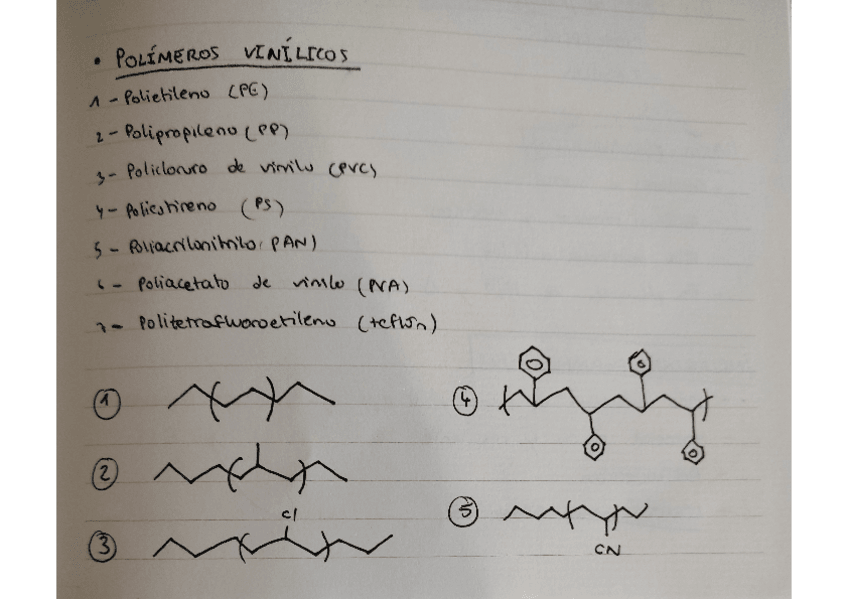 • POLÍMEROS VINÍLICOS
1 - Polietileno (PE)
2 - Polipropileno (PP)
3 - Policloruro de vinilo (PVC)
4 - Poliestireno (PS)
5 - Poliacrilonitrilo (PAN)
6 - Poliacetato de vinilo (PVA)
7 - Politetrafluoroetileno (teflón)
1
2
3
Cl
4
5
CN